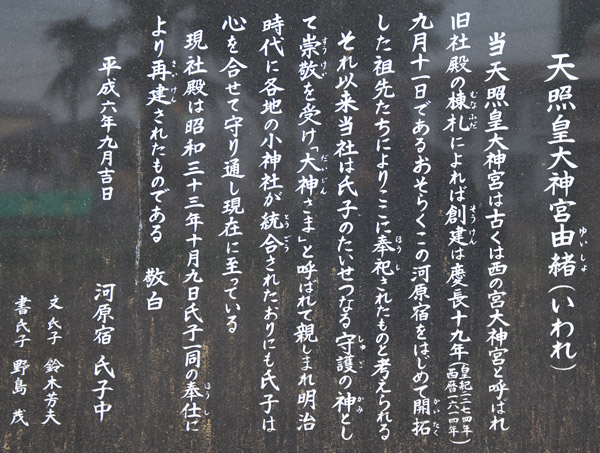 天照皇大神宮由緒(いわれ)
ゆいしょ
当天照皇大神宮は古くは西の宮大神宮と呼ばれ
旧社殿の棟札によれば創建は慶長十九年(皇紀二二七四年 西暦一六一四年)
むなふだ そうけん
九月十一日であるおそらくこの河原宿をはじめて開拓
かいたく
した祖先たちによりここに奉祀されたものと考えられる
ほうし
それ以来当社は氏子のたいせつなる守護の神とし
しゅご かみ
て崇敬を受け「大神さま」と呼ばれて親しまれ明治
すうけい だいじん
時代に各地の小神社が統合されたおりにも氏子は
とうごう
心を合せて守り通し現在に至っている
現社殿は昭和三十三年十月九日氏子一同の奉仕に
ほうし
より再建されたものである 敬白
さいけん
平成六年九月吉日
河原宿 氏子中
文 氏子 鈴木芳夫
書 氏子 野島 茂